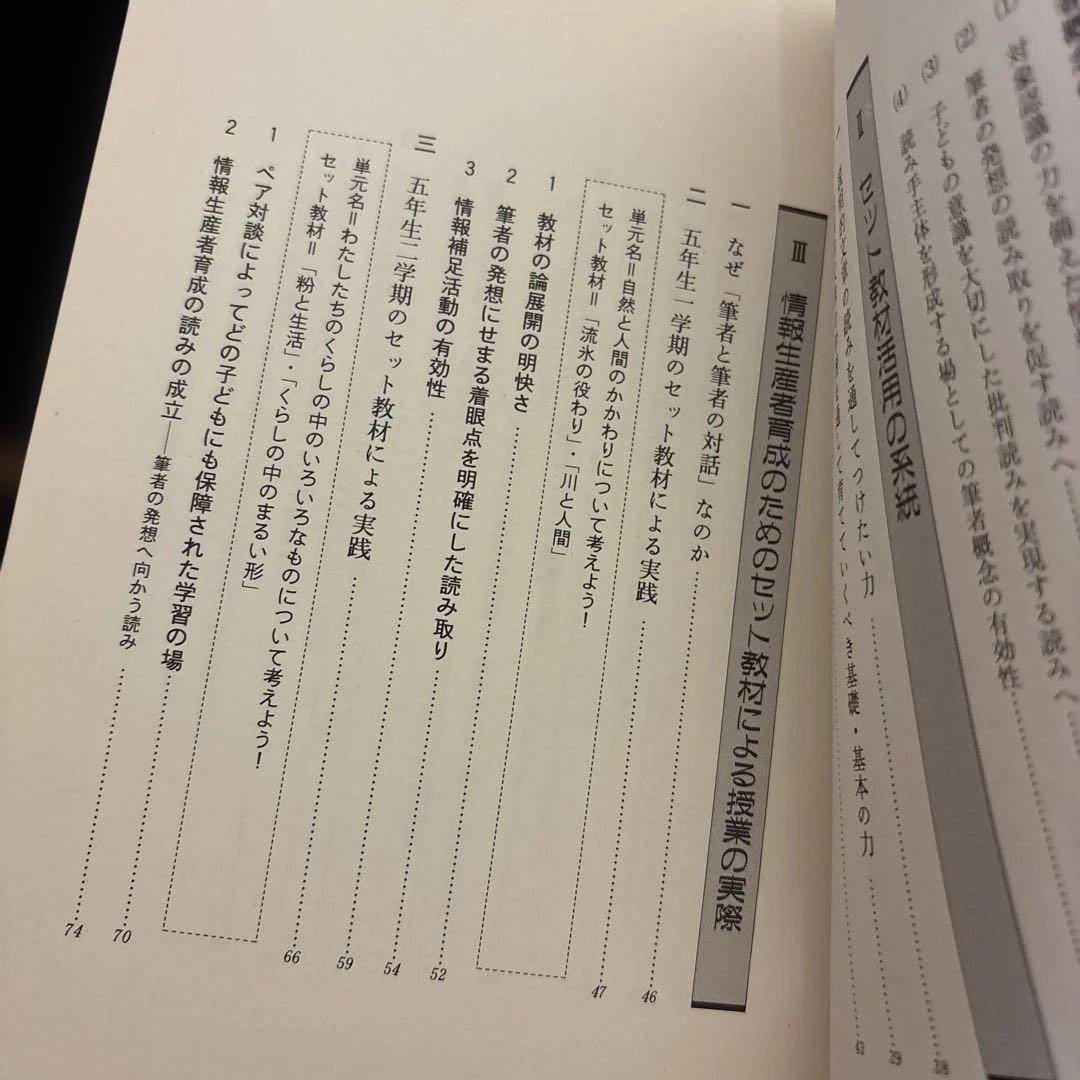 (1) 対象認識の力を備えた
(2) 筆者の発想の読み取りを促す読みへ
(3) 子どもの意識を大切にした批判読みを実現する読みへ
(4) 読み手主体を形成する場としての筆者概念の有効性 38
Ⅱ セット教材活用の系統
説明的文章の読みを通してつけたい力 39
を通して育てていくべき基礎・基本の力 43
Ⅲ 情報生産者育成のためのセット教材による授業の実際
一 なぜ「筆者と筆者の対話」なのか 46
二 五年生一学期のセット教材による実践 47
単元名＝自然と人間のかかわりについて考えよう！
セット教材＝「流氷の役わり」・「川と人間」
1 教材の論展開の明快さ 52
2 筆者の発想にせまる着眼点を明確にした読み取り 54
3 情報補足活動の有効性 59
三 五年生二学期のセット教材による実践 66
単元名＝わたしたちのくらしの中のいろいろなものについて考えよう！
セット教材＝「粉と生活」・「くらしの中のまるい形」
1 ペア対談によってどの子どもにも保障された学習の場 70
2 情報生産者育成の読みの成立──筆者の発想へ向かう読み 74